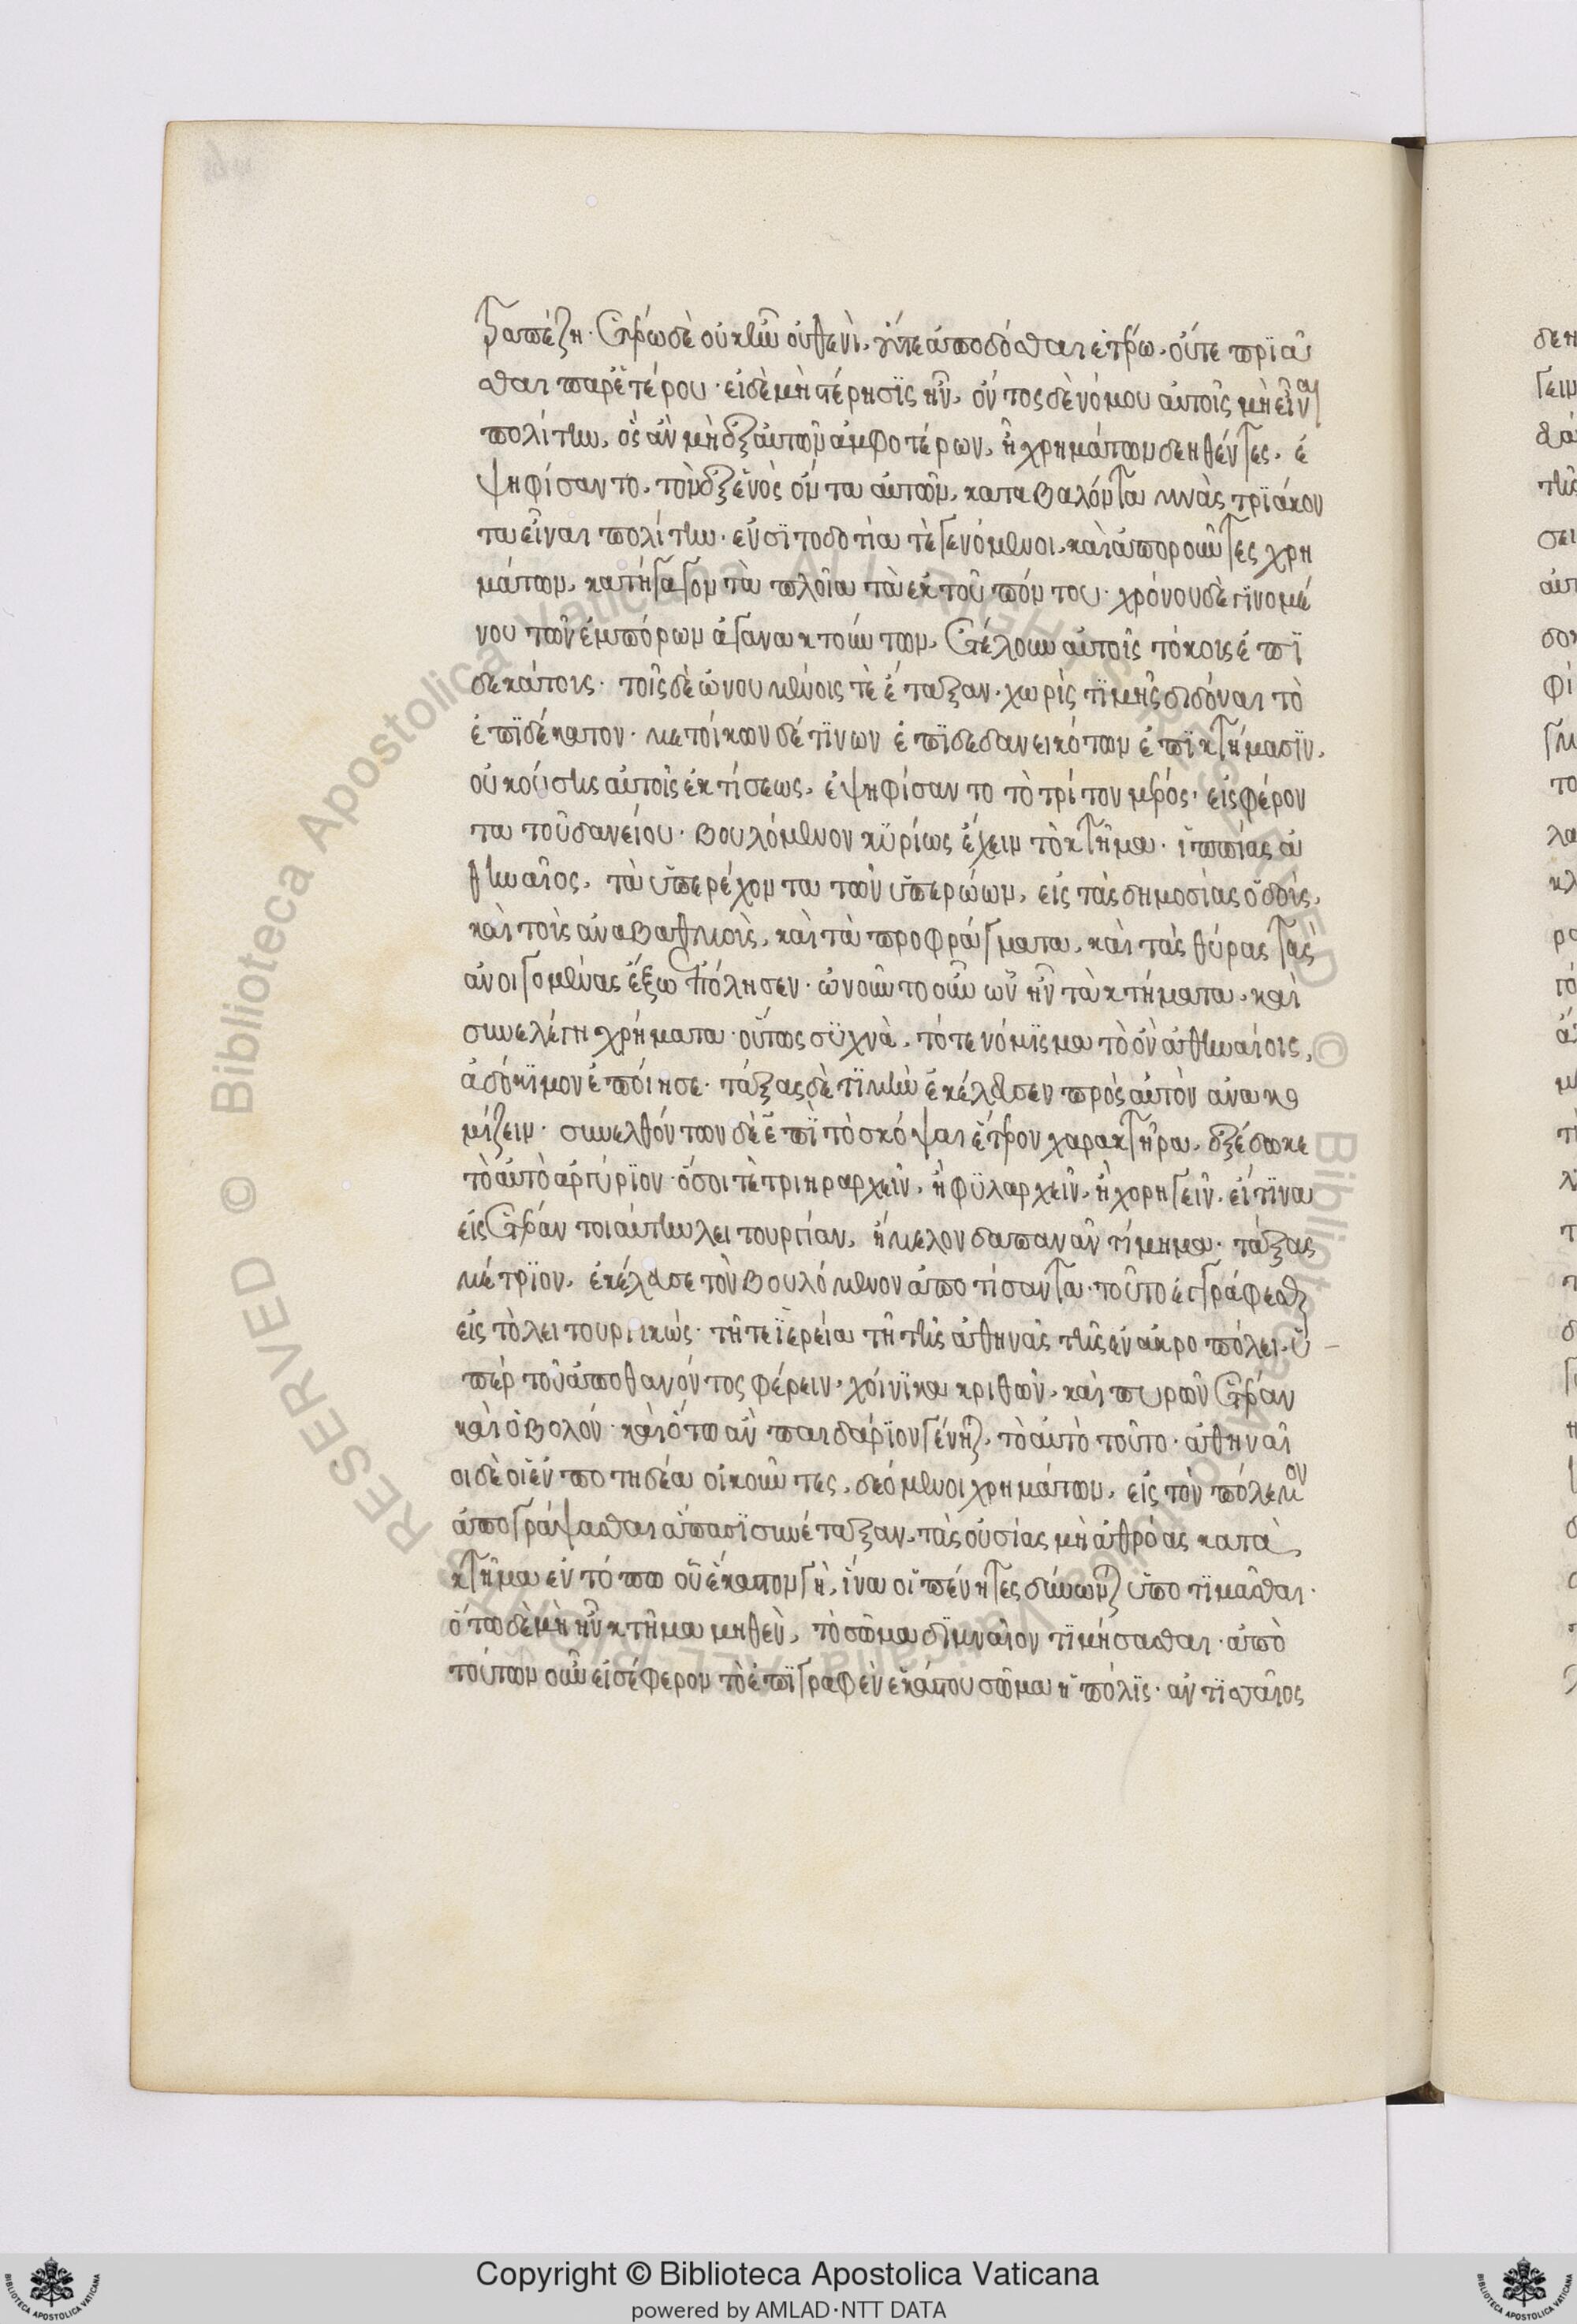 τραπέζη· ἑτέρω δὲ οὐκ ἦν οὐθενὶ, οὔτε ἀποδόσθαι ἑτέρω, οὔτε πρΐα
σθαι παρ' ἑτέρου· εἰ δὲ μὴ στέρησϊς ἦν, ὄντος δὲ νόμου αὐτοῖς μὴ εἶναι
πολίτην, ὃς ἂν μὴ ἐξ ἀστῶν ἀμφοτέρων, ἢ χρημάτων δεηθέντες, ἐ
ψηφίσαντο, τὸν ἐξ ἑνὸς ὄντα ἀστῶν, καταβαλόντα μνὰς τρϊάκον
τα εἶναι πολίτην· ἐν σϊτοδοτία τὲ γενόμενοι, καὶ ἀποροῦντες χρη
μάτων, κατήγαγον τὰ πλοῖα τὰ ἐκ τοῦ πόντου· χρόνου δὲ γϊνομέ
νου τῶν ἐμπόρων ἀγανακτούντων, ἐτέλουν αὐτοῖς τόκοις ἐπϊ
δεκάτοις· τοῖς δὲ ὠνουμένοις τὲ ἔταξαν, χωρὶς τϊμῆς διδόναι τὸ
ἐπϊδέκατον· μετοίκων δέ τϊνων ἐπϊδεδανεικότων ἐπϊ κτήμασϊν,
οὐκ οὔσης αὐτοῖς ἐκτίσεως, ἐψηφίσαντο τὸ τρίτον μέρος· εἰσφέρον
τα τοῦ δανείου· βουλόμενον κϋρίως ἔχειν τὸ κτῆμα· ἱππίας ἀ
θηναῖος, τὰ ὑπερέχοντα τῶν ὑπερώων, εἰς τὰς δημοσίας ὁδοὺς,
καὶ τοὺς ἀναβαθμοὺς, καὶ τὰ προφράγματα, καὶ τὰς θύρας τὰς
ἀνοιγομένας ἔξω ἐπόλησεν· ὠνοῦντο οὖν ὧν ἦν τὰ κτήματα, καὶ
συνελέγη χρήματα οὕτως σϋχνὰ, τό τε νόμϊσμα τὸ ὂν ἀθηναίοις,
ἀδόκϊμον ἐποίησε· τάξας δὲ τϊμὴν ἐκέλευσεν πρὸς αὐτὸν ἀνακο
μίζειν· συνελθόντων δὲ ἐπϊ τὸ σκόψαι ἕτερον χαρακτῆρα, ἐξέδωκε
τὸ αὐτὸ ἀργύρϊον· ὅσοι τὲ τριηραρχεῖν, ἢ φϋλαρχεῖν, ἢ χορηγεῖν, εἴ τϊνα
εἰς ἑτέραν τοιαύτην λειτουργίαν, ἤμελον δαπανᾶν τίμημα· τάξας
μέτρϊον, ἐκέλευσε τὸν βουλόμενον ἀποτίσαντα τοῦτο ἐγγράφεσθαι
εἰς τὸ λειτουργικώς· τῆ τε ϊερεία τῆ τῆς ἀθηνᾶς τῆς ἐν ἀκροπόλει, ὑ
πὲρ τοῦ ἀποθανόντος φέρειν, χοίνϊκα κριθῶν, καὶ πυρῶν ἑτέραν
καὶ ὀβολόν· καὶ ὅτω ἂν παιδάρϊον γένηται, τὸ αὐτὸ τοῦτο· ἀθηναῖ
οι δὲ οἱ ἐν ποτηδέα οἰκοῦντες, δεόμενοι χρημάτων, εἰς τὸν πόλεμον
ἀπογράψασθαι ἅπασϊ συνέταξαν, τὰς οὐσίας μὴ ἀθρόας κατὰ
κτῆμα ἐν τόπω οὗ ἕκαστον γῆ, ἵνα οἱ πένητες δύνωνται ὑποτϊμᾶσθαι·
ὅτω δὲ μὴ ἦν κτῆμα μηθὲν, τὸ σῶμα δϊμναῖον τϊμήσασθαι· ἀπὸ
τούτων οὖν εἰσέφερον τὸ ἐπϊγραφὲν ἑκάστου σῶμα ἡ πόλϊς· ἀντϊσσαῖος